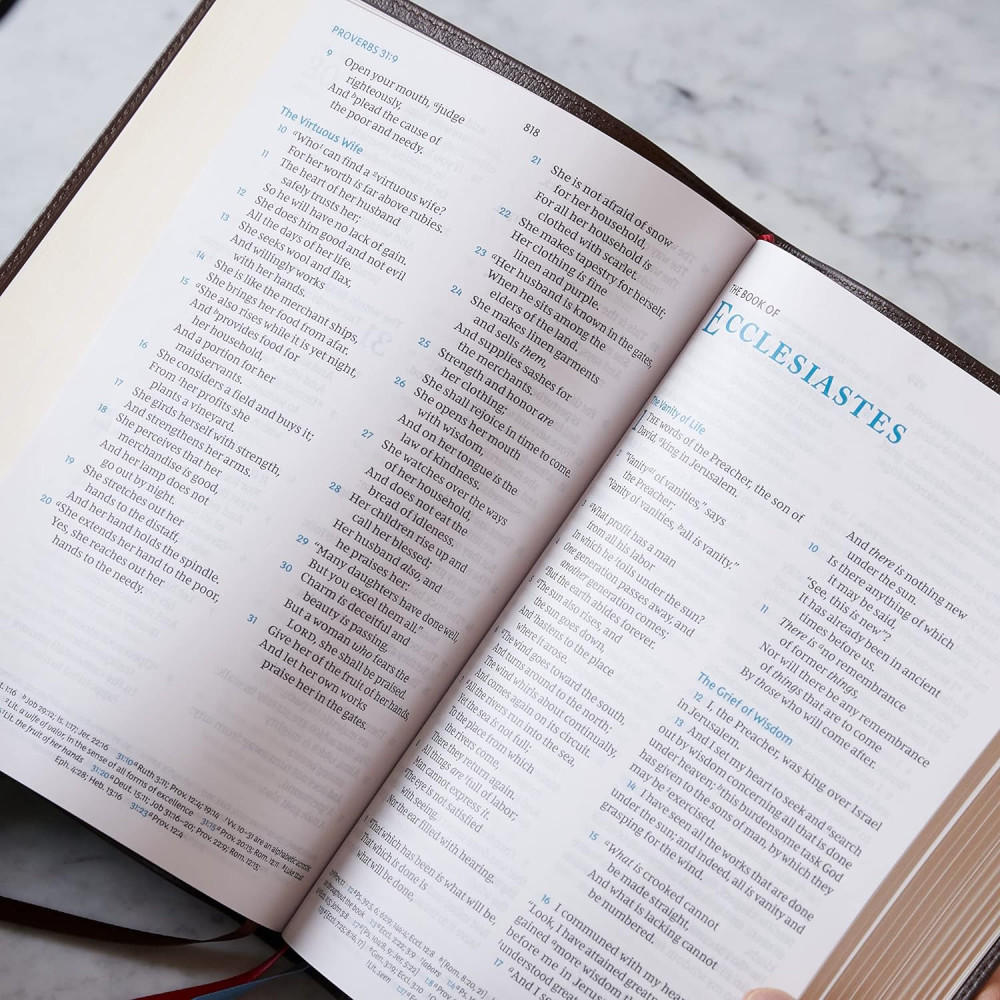 PROVERBS 31:9
818
9 Open your mouth, ᵃjudge
righteously,
And ᵇplead the cause of
the poor and needy.
The Virtuous Wife
10 ᵃWho¹ can find a ²virtuous wife?
For her worth is far above rubies.
11 The heart of her husband
safely trusts her;
So he will have no lack of gain.
12 She does him good and not evil
All the days of her life.
13 She seeks wool and flax,
And willingly works
with her hands.
14 She is like the merchant ships,
She brings her food from afar.
15 ᵃShe also rises while it is yet night,
And ᵇprovides food for
her household,
And a portion for her
maidservants.
16 She considers a field and buys it;
From her profits she
plants a vineyard.
17 She girds herself with strength,
And strengthens her arms.
18 She perceives that her
merchandise is good,
And her lamp does not
go out by night.
19 She stretches out her
hands to the distaff,
And her hand holds the spindle.
20 ᵃShe extends her hand to the poor,
Yes, she reaches out her
hands to the needy.
21 She is not afraid of snow
for her household,
For all her household is
clothed with scarlet.
22 She makes tapestry for herself;
Her clothing is fine
linen and purple.
23 ᵃHer husband is known in the gates,
When he sits among the
elders of the land.
24 She makes linen garments
and sells them,
And supplies sashes for
the merchants.
25 Strength and honor are
her clothing;
She shall rejoice in time to come.
26 She opens her mouth
with wisdom,
And on her tongue is the
law of kindness.
27 She watches over the ways
of her household,
And does not eat the
bread of idleness.
28 Her children rise up and
call her blessed;
Her husband also, and
he praises her:
29 “Many daughters have done well,
But you excel them all.”
30 Charm is deceitful and
beauty is passing,
But a woman who fears the
LORD, she shall be praised.
31 Give her of the fruit of her hands,
And let her own works
praise her in the gates.
1:16 ᵇJob 29:12; Is. 1:17; Jer. 22:16 31:10 ᵃRuth 3:11; Prov. 12:4; 19:14 ¹Vv. 10–31 are an alphabetic acrostic
²Lit. a wife of valor, in the sense of all forms of excellence 31:15 ᵃProv. 20:13; Rom. 12:11 ᵇLuke 12:42
Lit. the fruit of her hands 31:20 ᵃDeut. 15:11; Job 31:16–20; Prov. 22:9; Rom. 12:13
Eph. 4:28; Heb. 13:16 31:23 ᵃProv. 12:4
THE BOOK OF
ECCLESIASTES
The Vanity of Life
1 The words of the Preacher, the son of
David, ᵃking in Jerusalem.
2 “Vanity of vanities,” says
the Preacher;
“Vanity of vanities, ᵇall is vanity.”
3 ᵃWhat profit has a man
from all his labor
In which he toils under the sun?
4 One generation passes away, and
another generation comes;
ᵃBut the earth abides forever.
5 ᵃThe sun also rises, and
the sun goes down,
And hastens to the place
where it arose.
6 ᵃThe wind goes toward the south,
And turns around to the north;
The wind whirls about continually,
And comes again on its circuit.
7 ᵃAll the rivers run into the sea,
Yet the sea is not full;
To the place from which
the rivers come,
There they return again.
8 All things are full of labor;
Man cannot express it.
ᵃThe eye is not satisfied
with seeing,
Nor the ear filled with hearing.
9 ᵃThat which has been is what will be,
That which is done is
what will be done,
And there is nothing new
under the sun.
10 Is there anything of which
it may be said,
“See, this is new”?
It has already been in ancient
times before us.
11 There is ᵃno remembrance
of former things,
Nor will there be any remembrance
of things that are to come
By those who will come after.
The Grief of Wisdom
12 I, the Preacher, was king over Israel
in Jerusalem.
13 And I set my heart to seek and ᵃsearch
out by wisdom concerning all that is done
under heaven; ᵇthis burdensome task God
has given to the sons of man, by which they
may be exercised.
14 I have seen all the works that are done
under the sun; and indeed, all is vanity and
grasping for the wind.
15 ᵃWhat is crooked cannot
be made straight,
And what is lacking cannot
be numbered.
16 I communed with my heart,
“Look, I have attained great
gained ᵃmore wisdom
before me in Jerusa
understood great
17 ᵃAnd I se